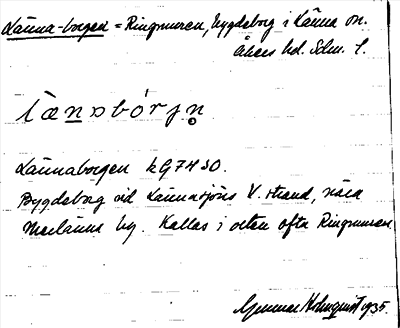 Länna-borgen = Ringmuren, bygdeborg i Länna sn.
Åkers hd. Södm. l.
Lännaborgen kG7430.
Bygdeborg vid Lännasjöns V. strand, nära
Marlänna by. Kallas i orten ofta Ringmuren.
Gunnar Holmquist 1935.